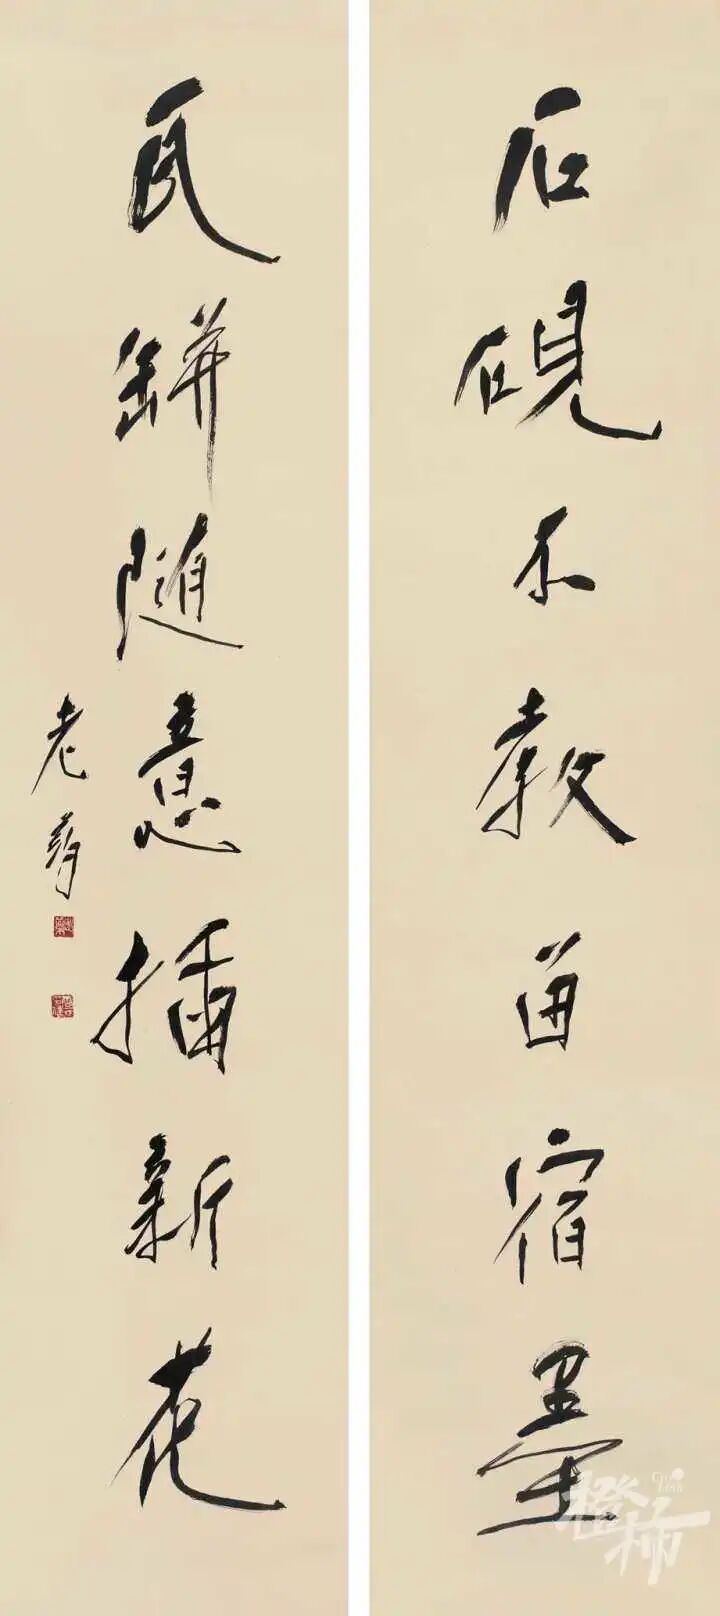 石硯不教留宿墨
瓦缾随意插新花
老
橙柿